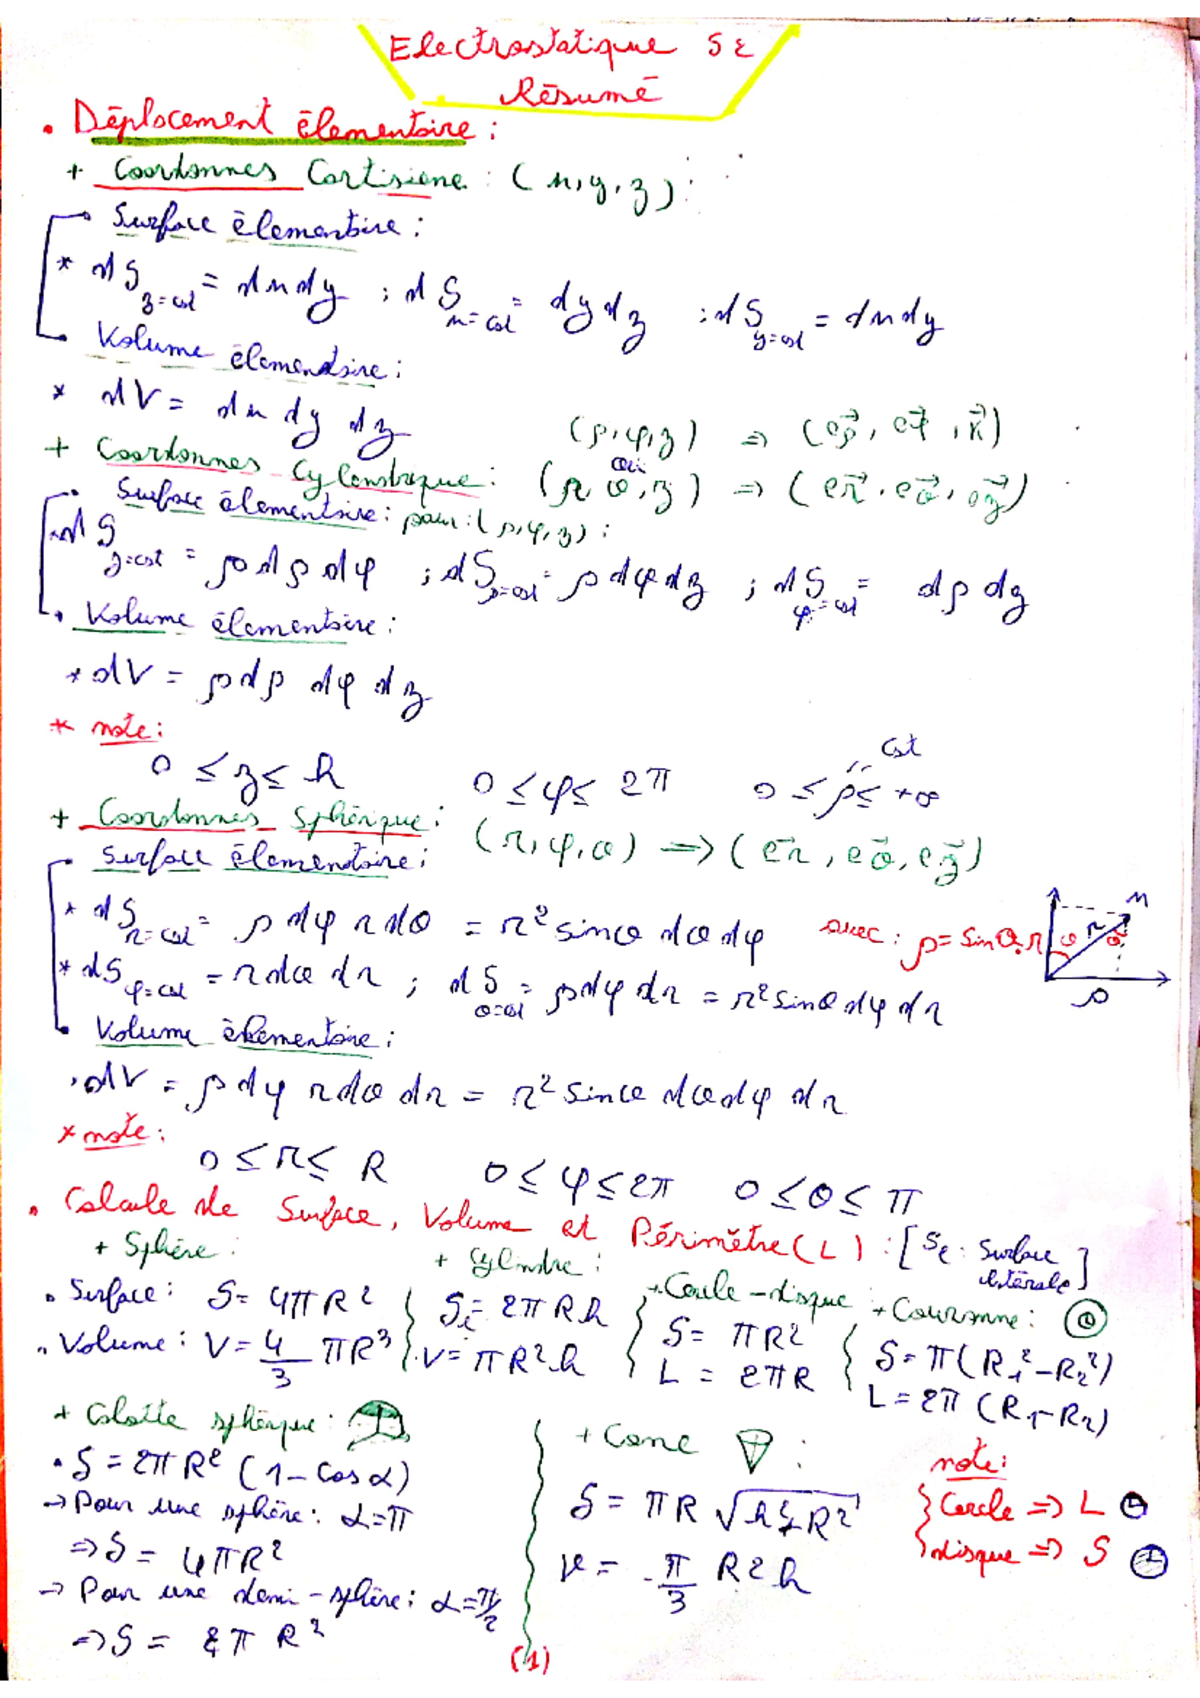 Electrostatique S2
Résumé
• Déplacement élementaire :
+ Coordonnes Cartisiene : (x, y, z) :
• Surface élementaire :
* dS z=cst = dx dy ; dS x=cst = dy dz ; dS y=cst = dx dy
• Volume élementaire :
* dV = dx dy dz
(ρ, φ, z) ⇒ (eρ⃗, eφ⃗, k⃗)
+ Coordonnes Cylendrique : ou (r, θ, z) ⇒ (er⃗, eθ⃗, ez⃗)
• Surface élementaire : pour : (ρ, φ, z) :
dS z=cst = ρ dρ dφ ; dS ρ=cst = ρ dφ dz ; dS φ=cst = dρ dz
• Volume élementaire :
* dV = ρ dρ dφ dz
* note :
cst
0 ≤ z ≤ h 0 ≤ φ ≤ 2π 0 ≤ ρ ≤ +∞
+ Coordonnes Sphérique : (r, φ, θ) ⇒ (er⃗, eθ⃗, ez⃗)
• Surface élementaire :
* dS r=cst = ρ dφ r dθ = r² sinθ dθ dφ avec : ρ = sinθ.r
M
r θ θ
ρ
* dS φ=cst = r dθ dr ; dS θ=cst = ρ dφ dr = r² sinθ dφ dr
• Volume élementaire :
• dV = ρ dφ r dθ dr = r² sinθ dθ dφ dr
* note :
0 ≤ r ≤ R 0 ≤ φ ≤ 2π 0 ≤ θ ≤ π
• Calcule de Surface, Volume et Périmètre (L) : [Sℓ : Surface latérale]
+ Sphère : + Cylindre : + Cercle-disque + Couronne :
• Surface : S = 4πR² { Sℓ = 2πRh { S = πR² { S = π(R₁² - R₂²)
• Volume : V = 4/3 πR³ { V = πR²h { L = 2πR { L = 2π(R₁ - R₂)
+ Calotte sphérique :
• S = 2πR² (1 - cos α)
→ Pour une sphère : α = π
⇒ S = 4πR²
→ Pour une demi-sphère : α = π/2
⇒ S = 2πR²
+ Cone :
S = πR √h²+R²
V = π/3 R²h
note :
{ Cercle ⇒ L
{ disque ⇒ S
(1)